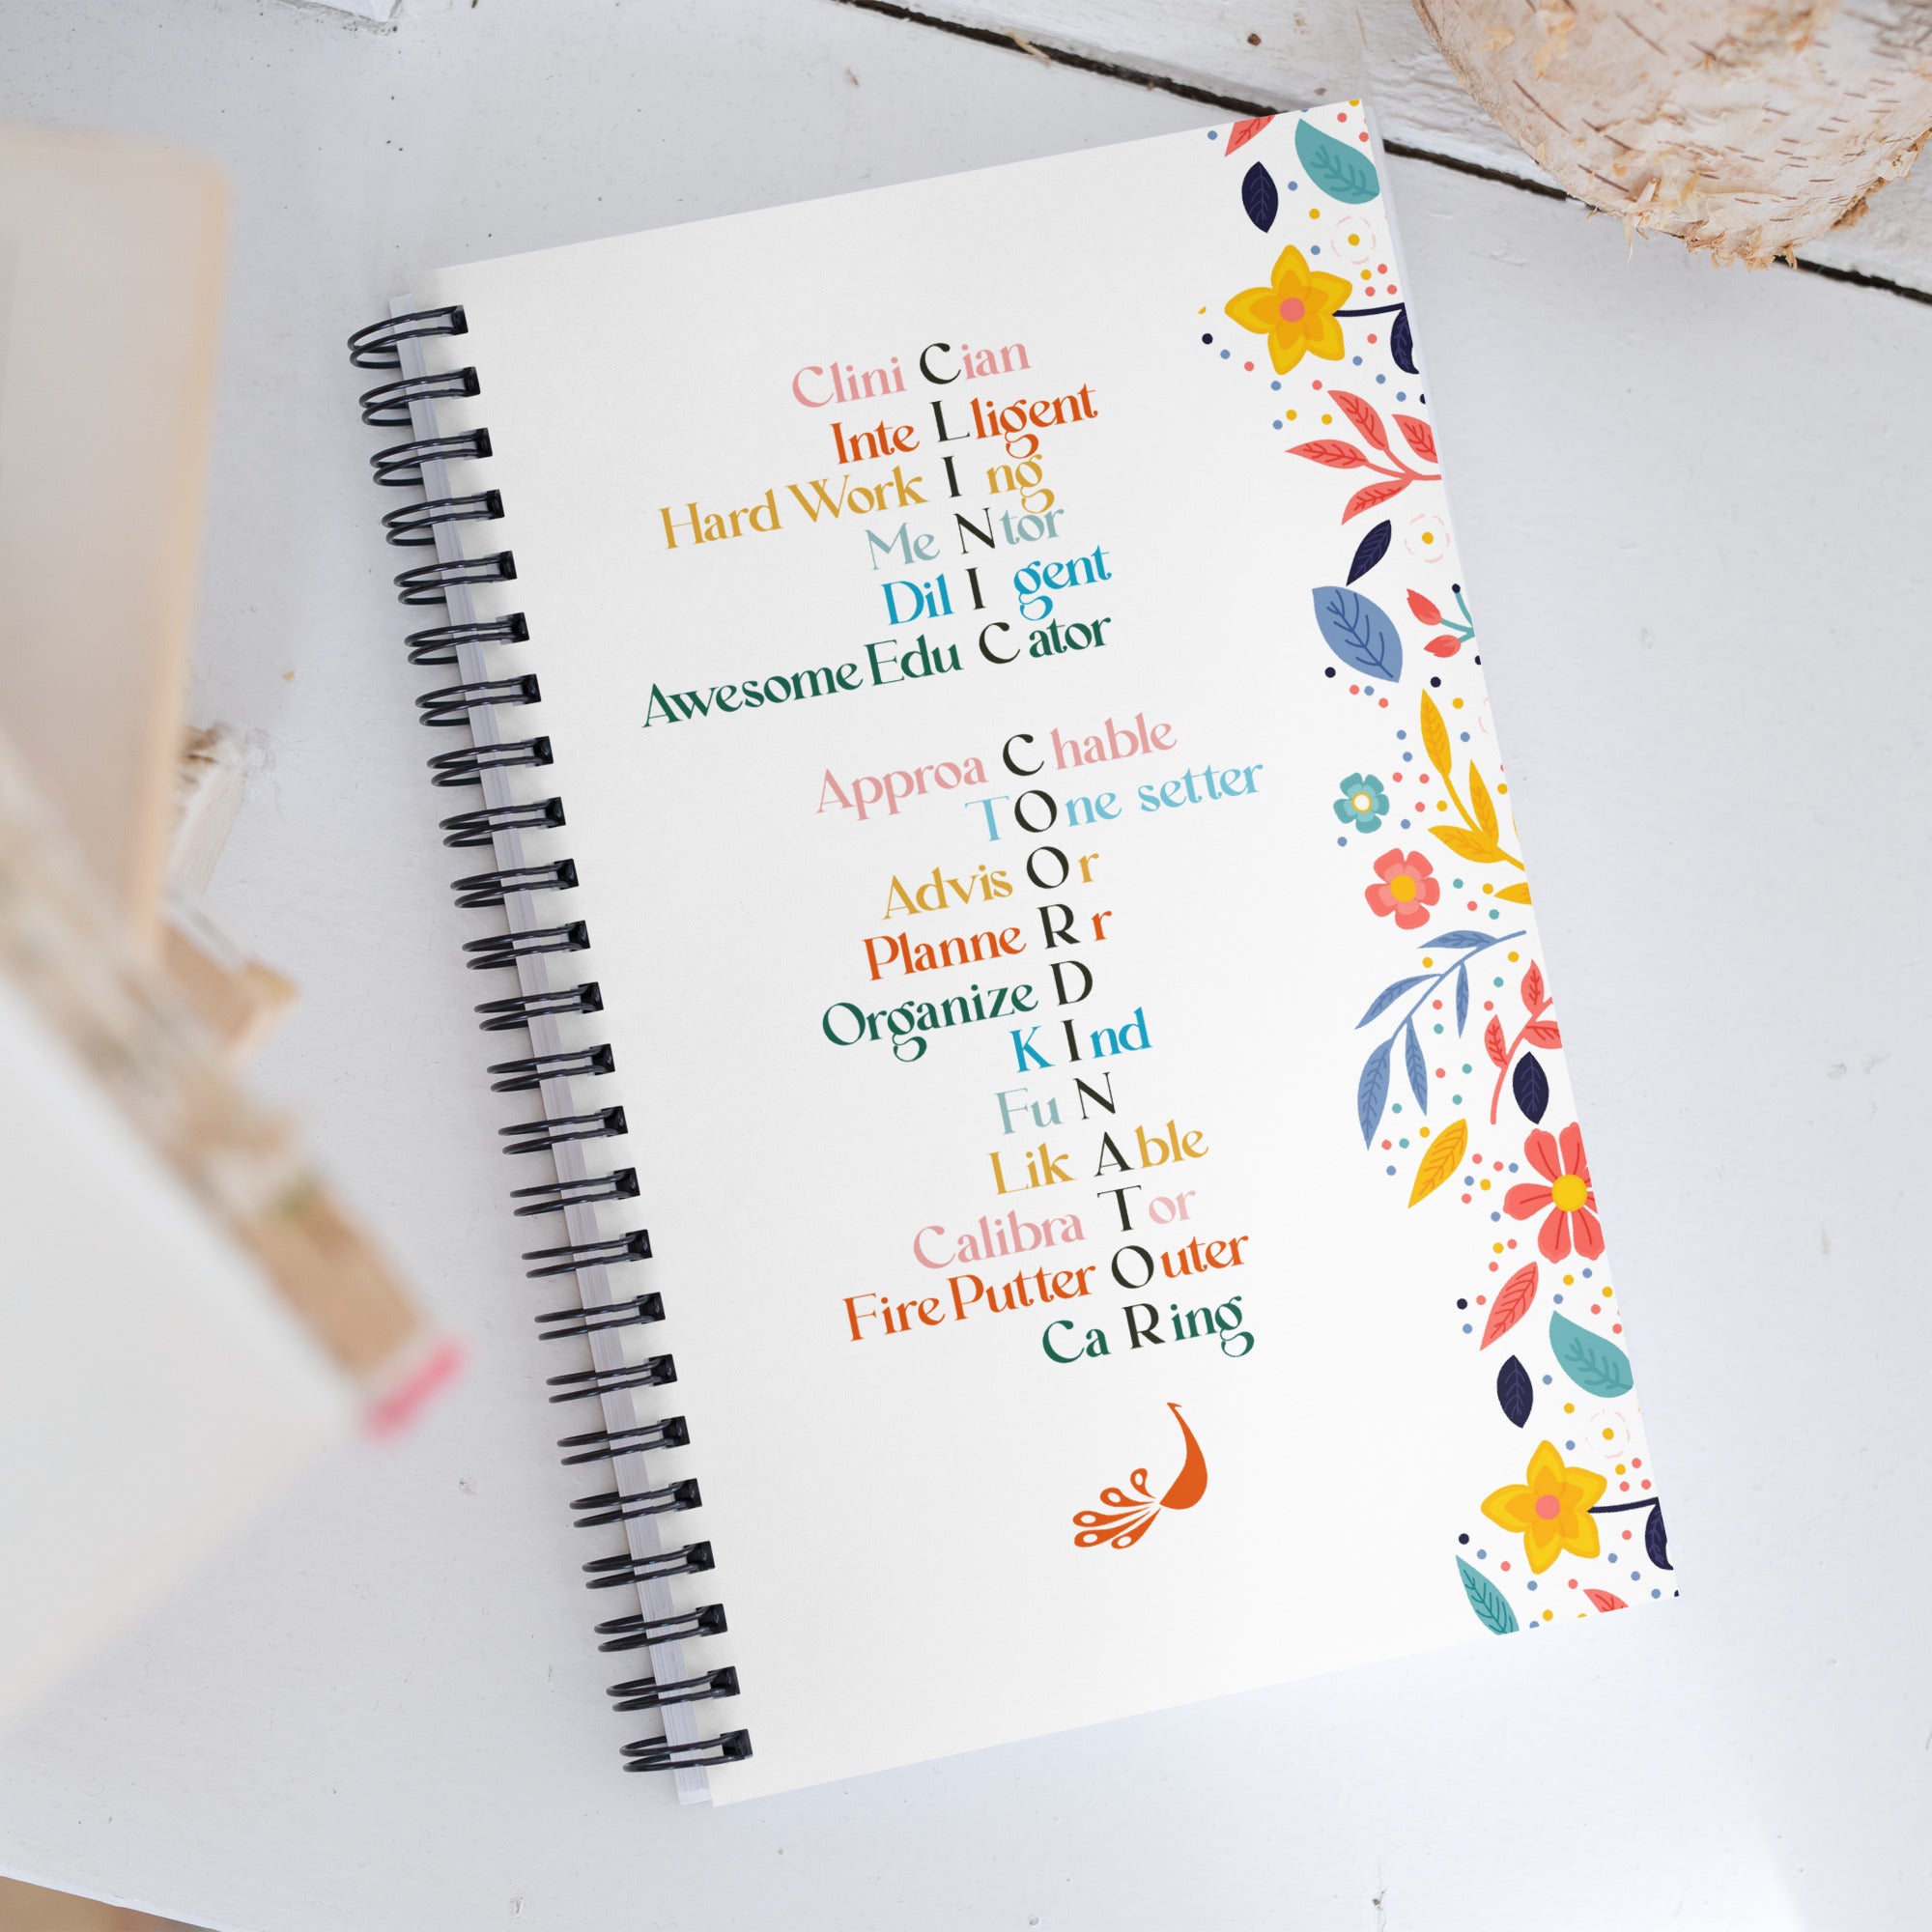 Clini C ian
Inte L ligent
Hard Work I ng
Me N tor
Dil I gent
Awesome Edu C ator
Approa C hable
T O ne setter
Advis O r
Planne R r
Organize D
K I nd
Fu N
Lik A ble
Calibra T or
Fire Putter O uter
Ca R ing